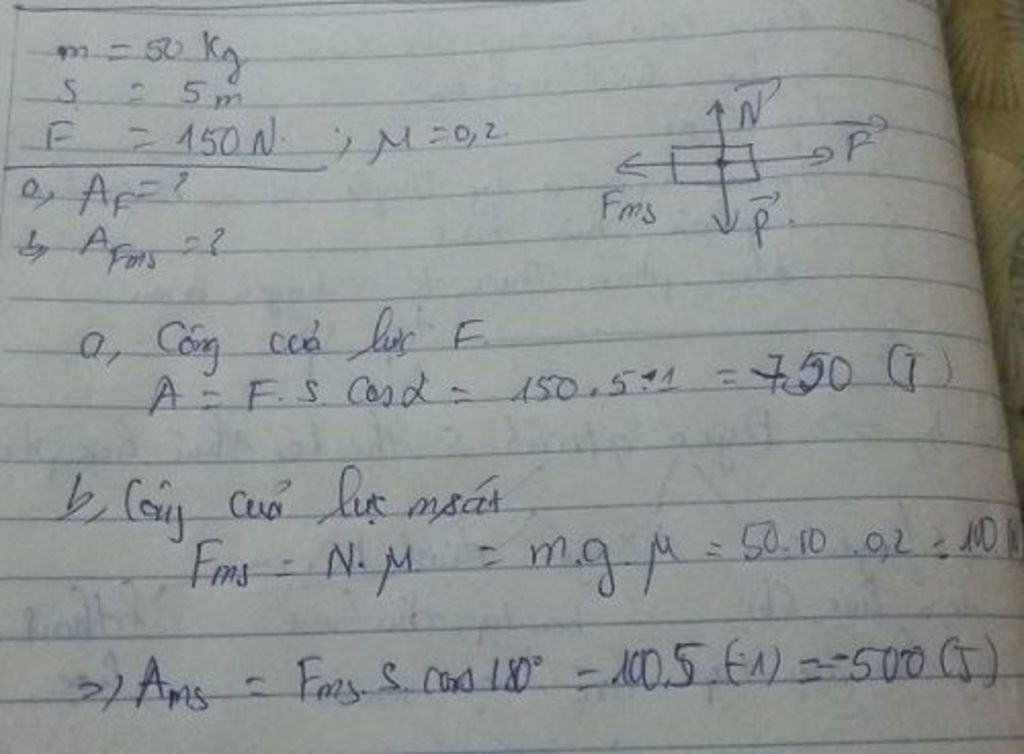 m = 50 kg
S = 5m
F = 150N. ; μ = 0,2.
a, A_F = ?
b, A_Fms = ?
N
F
Fms
P.
a, Công của lực F.
A = F. S. Cosα = 150.5.1 = 750 (J)
b, Công của lực msát
Fms = N.μ. = m.g.μ = 50.10.0,2 = 100 N
=) Ams = Fms. S. cos 180° = 100.5.(-1) = -500 (J)